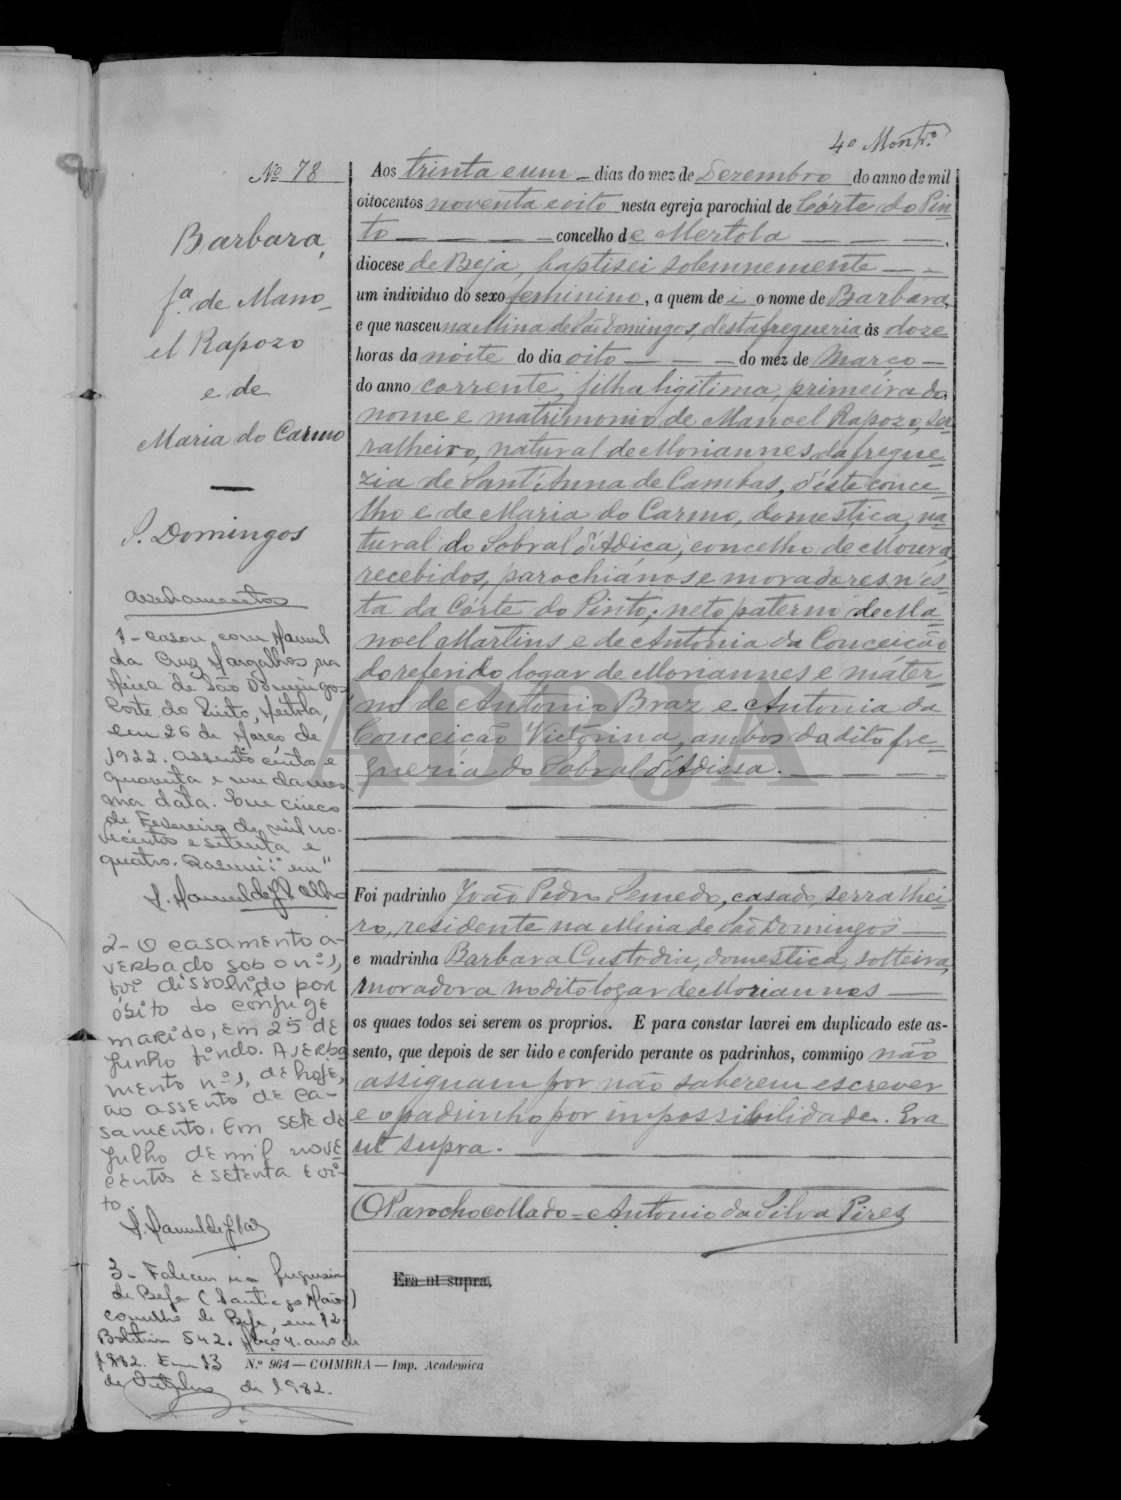 4º Montr.º
Nº 78
Barbara,
f.ª de Mano-
el Rapozo
e de
Maria do Carmo
S. Domingos
Averbamentos
1- Casou com Manuel
da Cruz Margalhos, na
Mina de São Domingos,
Corte do Pinto, Mértola,
em 26 de Março de
1922. Assento cento e
quarenta e um da mes-
ma data. Em cinco
de Fevereiro de mil no-
vecentos e setenta e
quatro. Rasurei: "em"
2- O casamento a-
verbado sob o nº 1,
foi dissolvido por
óbito do cônjuge
marido, em 25 de
Junho findo. Averba-
mento nº 1, de hoje,
ao assento de ca-
samento. Em sete de
Julho de mil nove-
centos e setenta e oi-
to
3- Faleceu na freguesia
de Beja (Santiago Maior)
concelho de Beja, em 12
Boletim 542. Maço 4. ano de
1982. Em 13
de Outubro de 1982.
Aos trinta e um dias do mez de Dezembro do anno de mil
oitocentos noventa e oito nesta egreja parochial de Córte do Pin-
to concelho de Mertola
diocese de Beja, baptisei solemnemente
um individuo do sexo feminino, a quem dei o nome de Barbara,
e que nasceu na Mina de São Domingos, d'esta fregueria ás doze
horas da noite do dia oito do mez de Março
do anno corrente, filha ligitima, primeira do
nome e matrimonio de Manoel Rapozo, ser-
ralheiro, natural de Moriannes, da fregue-
zia de Sant'Anna de Cambas, d'este conce-
lho e de Maria do Carmo, domestica, na-
tural do Sobral d'Adica, concelho de Moura,
recebidos, parochianos e moradores n'es-
ta da Córte do Pinto; neto paterno de Ma-
noel Martins e de Antonia da Conceição
do referido logar de Moriannes e mater-
no de Antonio Braz e Antonia da
Conceição Victorina, ambos da dita fre-
gueria do Sobral d'Adissa.
ADBJA
Foi padrinho João Pedro Semedo, casado, serralhei-
ro, residente na Mina de São Domingos
e madrinha Barbara Custodia, domestica, solteira,
moradora no dito logar de Moriannes
os quaes todos sei serem os proprios. E para constar lavrei em duplicado este as-
sento, que depois de ser lido e conferido perante os padrinhos, commigo não
assignam por não saberem escrever
e o padrinho por impossibilidade. Era
ut supra.
O Parocho collado = Antonio da Silva Pires
Era ut supra.
N.º 964 — COIMBRA — Imp. Academica